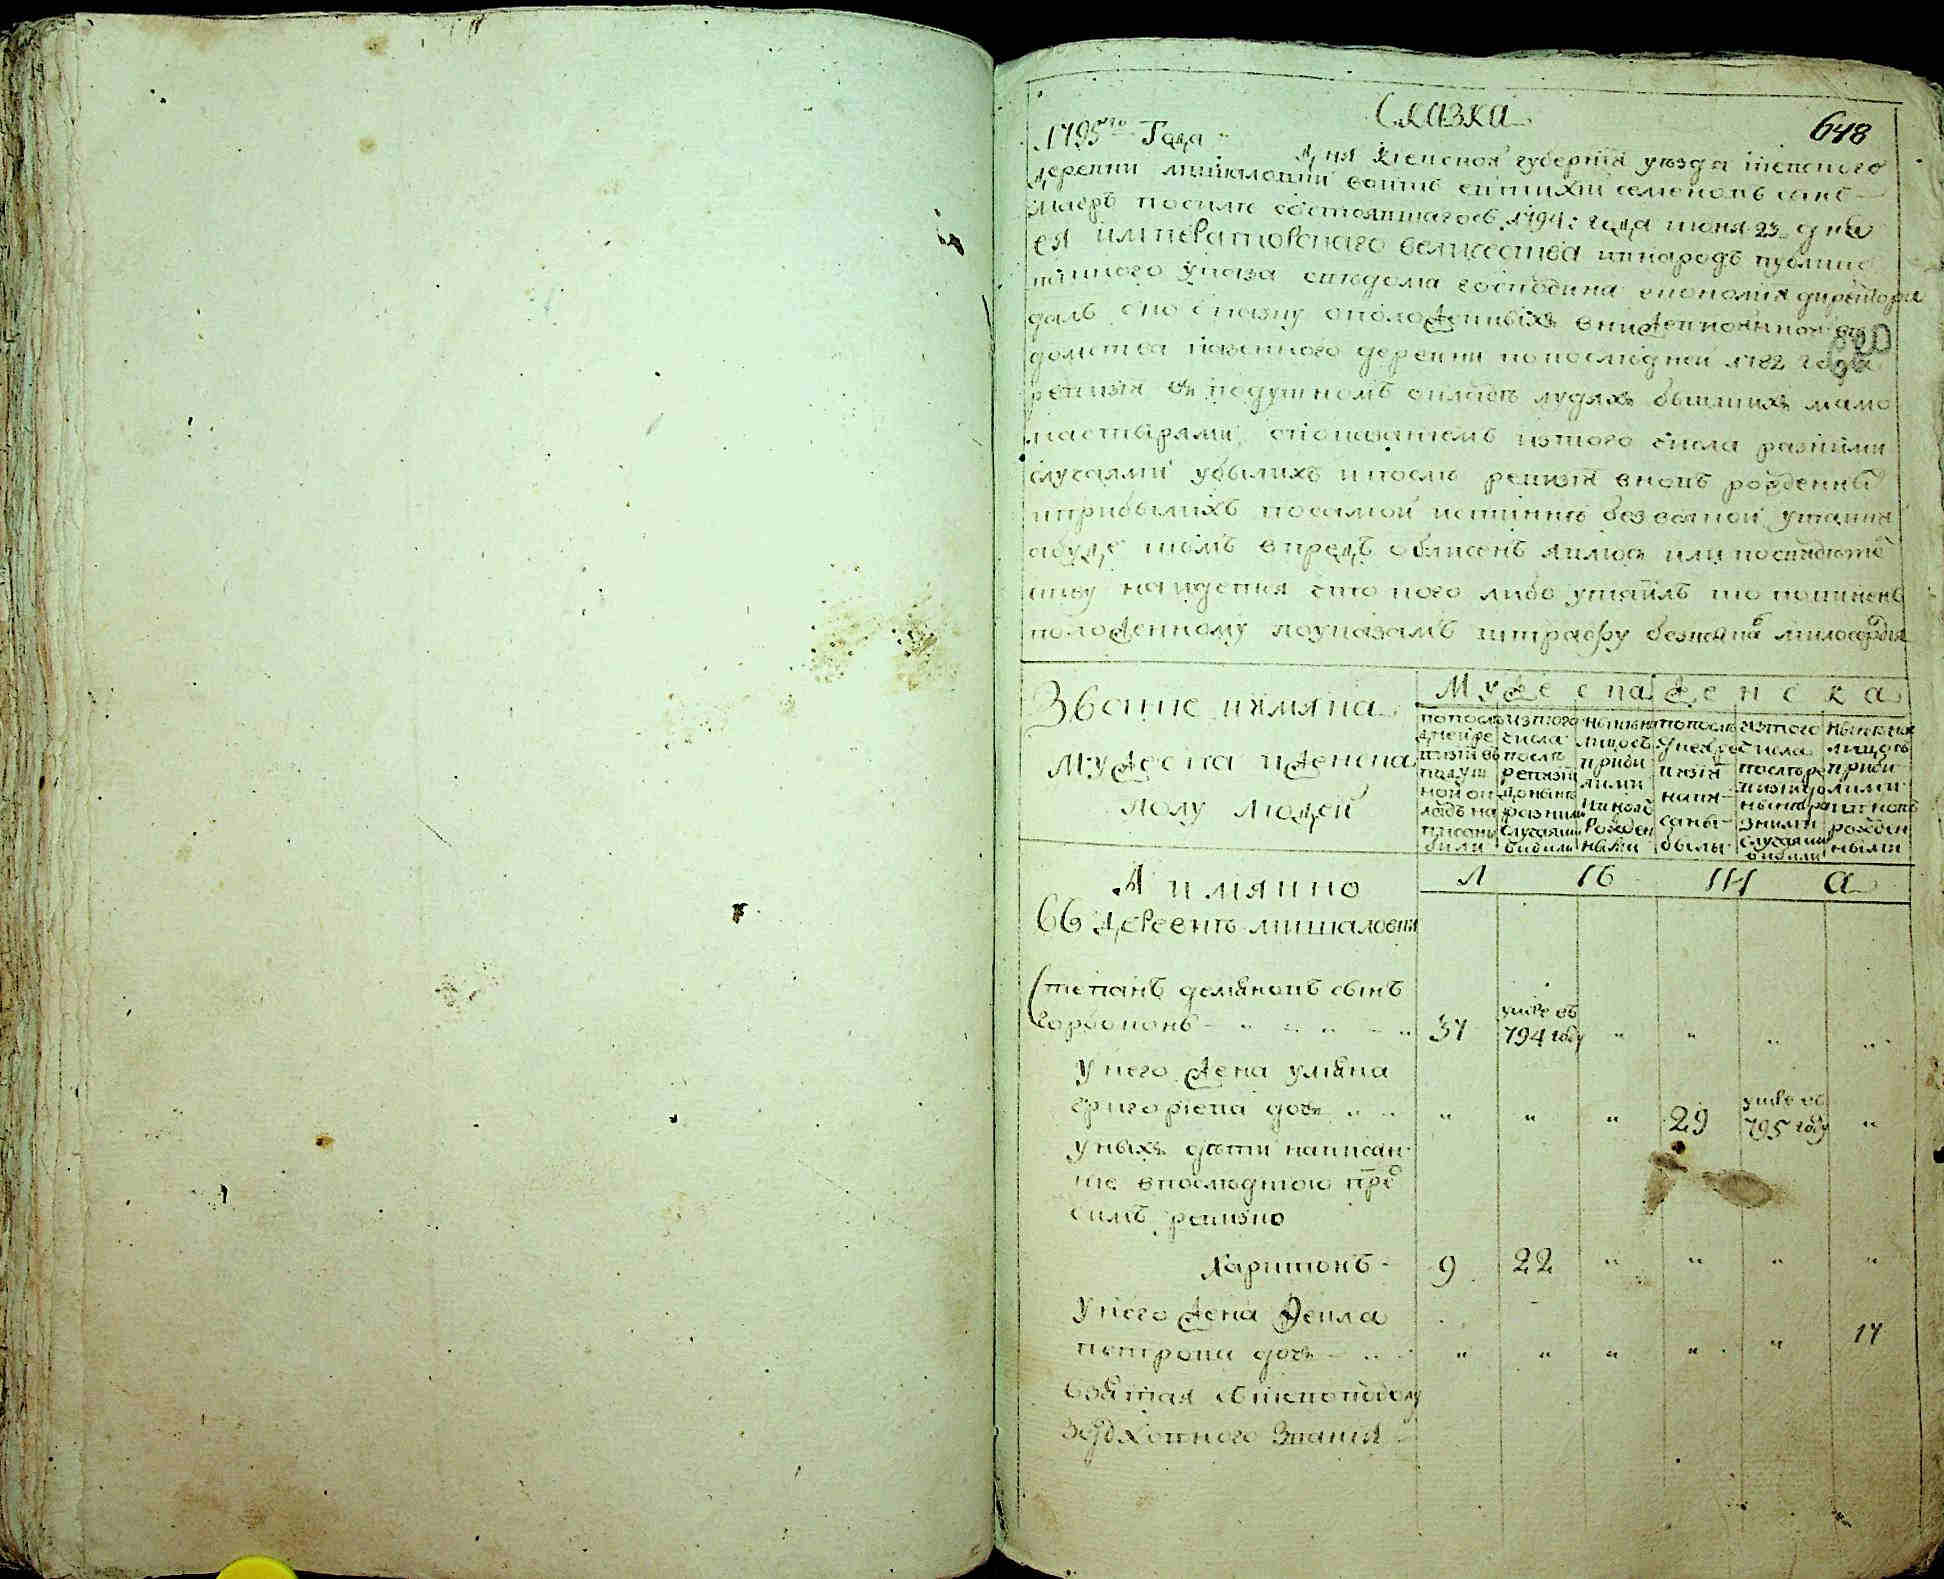 Сказка
648
1795го Года
дня Киевской губернїи уезда киевского
деревни мишаловки воитъ евтихїи семеновъ сынъ
 въ силе состоявшагося 1794: года июня 23 дня
ея императорского величества въ народъ публико
ванного указа съ ведома господина економїи директора
далъ сию сказку о положенныхъ в нижеписанной ве
домства казенного деревни по последней 1782 года
ревизїи въ подушномъ окладѣ людяхъ бывшихъ мало
 с показаниемъ изъ того числа разными
случаями убылихъ и после ревизїи вновь рожденныхъ
и прибылихъ по самой истиннѣ без всякой утайки
а буде кемъ впредъ обличенъ явлюся или по свидѣтел
ству найдется что кого либо утаилъ то повиненъ
положенному по указамъ штрафу безъ всякого милосердїя
Званїе и имяна
мужеска и женска
полу людей
Мужеска
женска
по после
дней ре
визїи въ
подуш
ной ок
ладъ на
писаны
были
из того
числа
послѣ
ревизїи
до нынѣ
разними
случаями
вибили
нынѣ на
лицо съ
прибы
лими
и вновь
рожден
ными
по после
дней ре
визїи
напи
саны
были
из того
числа
после ре
визїи до
нынѣ ра
зними
случаями
вибили
нынѣ на
лицо съ
прибы
лими
и вновь
рожден
ными
А имянно
Л
ѣ
т
а
Въ деревнѣ мишаловки
Степанъ демяновъ сынъ
горбоконь 37 умре въ 794 году
у него жена уляна
григорїева дочь 29 умре въ 795 году
у ныхъ дѣти написан
ные в последнюю пред
симъ ревизїю
харитонъ 9 22
у него жена Фекла
петрова дочь 17
взятая съ
 духовного званїя